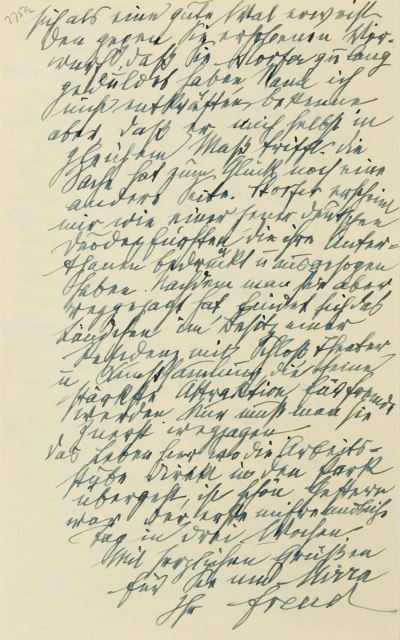 sich als eine gute Wal erweist.
Den gegen Sie erhobenen Vor-
wurf, daß Sie Storfer zu lang
geduldet haben kann ich
nicht entkräften, bekenne
aber, daß er mich selbst in
gleichem Maß trifft. Die
Sache hat zum Glück noch eine
andere Seite. Storfer erscheint
mir wie einer jener deutschen
Duodezfürsten, die ihre Unter-
thanen bedrückt u ausgesogen
haben. Nachdem man sie aber
weggejagt hat, findet sich das
Ländchen im Besitz einer
Residenz mit Schloß, Theater
u Kunstsammlung, die seine
stärkste Attraktion für Fremde
werden. Nur muß man sie
zuerst wegjagen.
Das Leben hier, wo die Arbeits-
stube direkt in den Park
übergeht, ist schön. Gestern
war der erste unfreundliche
Tag in drei Wochen.
Mit herzlichen Grüßen
für Sie und Mirra
Ihr Freud